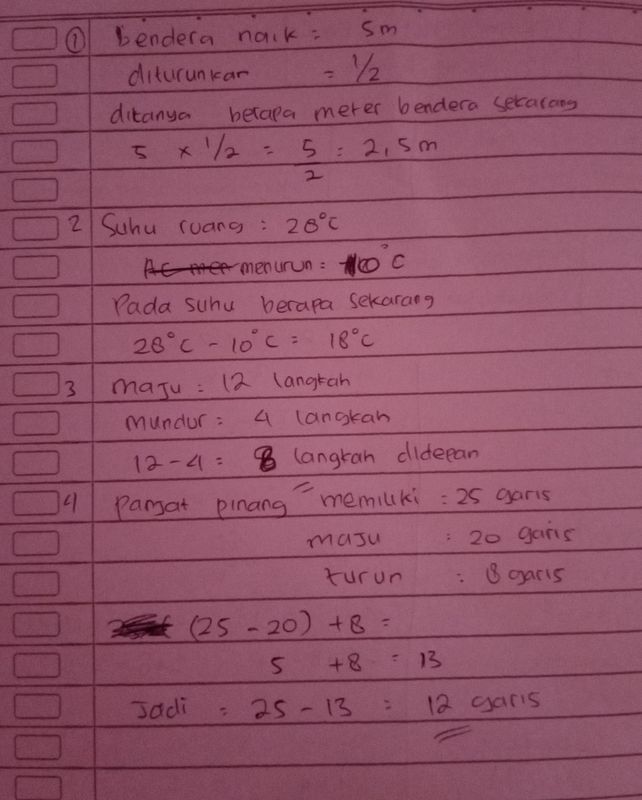 ① bendera naik = 5m
diturunkan = 1/2
ditanya berapa meter bendera sekarang
5 × 1/2 = 5/2 = 2,5m
2 Suhu ruang : 28°C
menurun : 10°C
Pada suhu berapa sekarang
28°C - 10°C = 18°C
3 maju : 12 langkah
mundur : 4 langkah
12 - 4 = 8 langkah didepan
4 Panjat pinang = memiliki : 25 garis
maju : 20 garis
turun : 8 garis
(25 - 20) + 8 =
5 + 8 = 13
Jadi = 25 - 13 = 12 garis